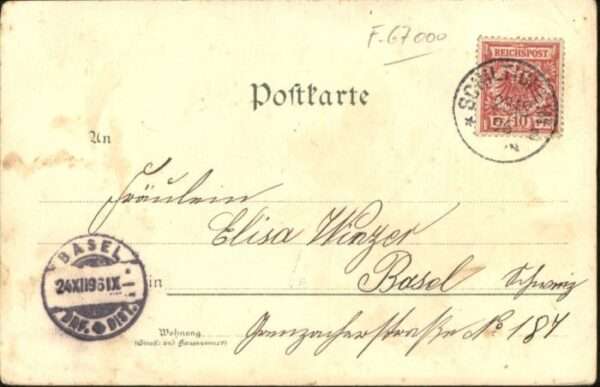 F. 67000
REICHSPOST
10
Postkarte
An
Fräulein
Elisa Winzer
BASEL
24 XII 96 IX
BRF. DIST.
in Basel Schweiz
Wohnung
(Straße und Hausnummer)
Grenzacherstraße No 184